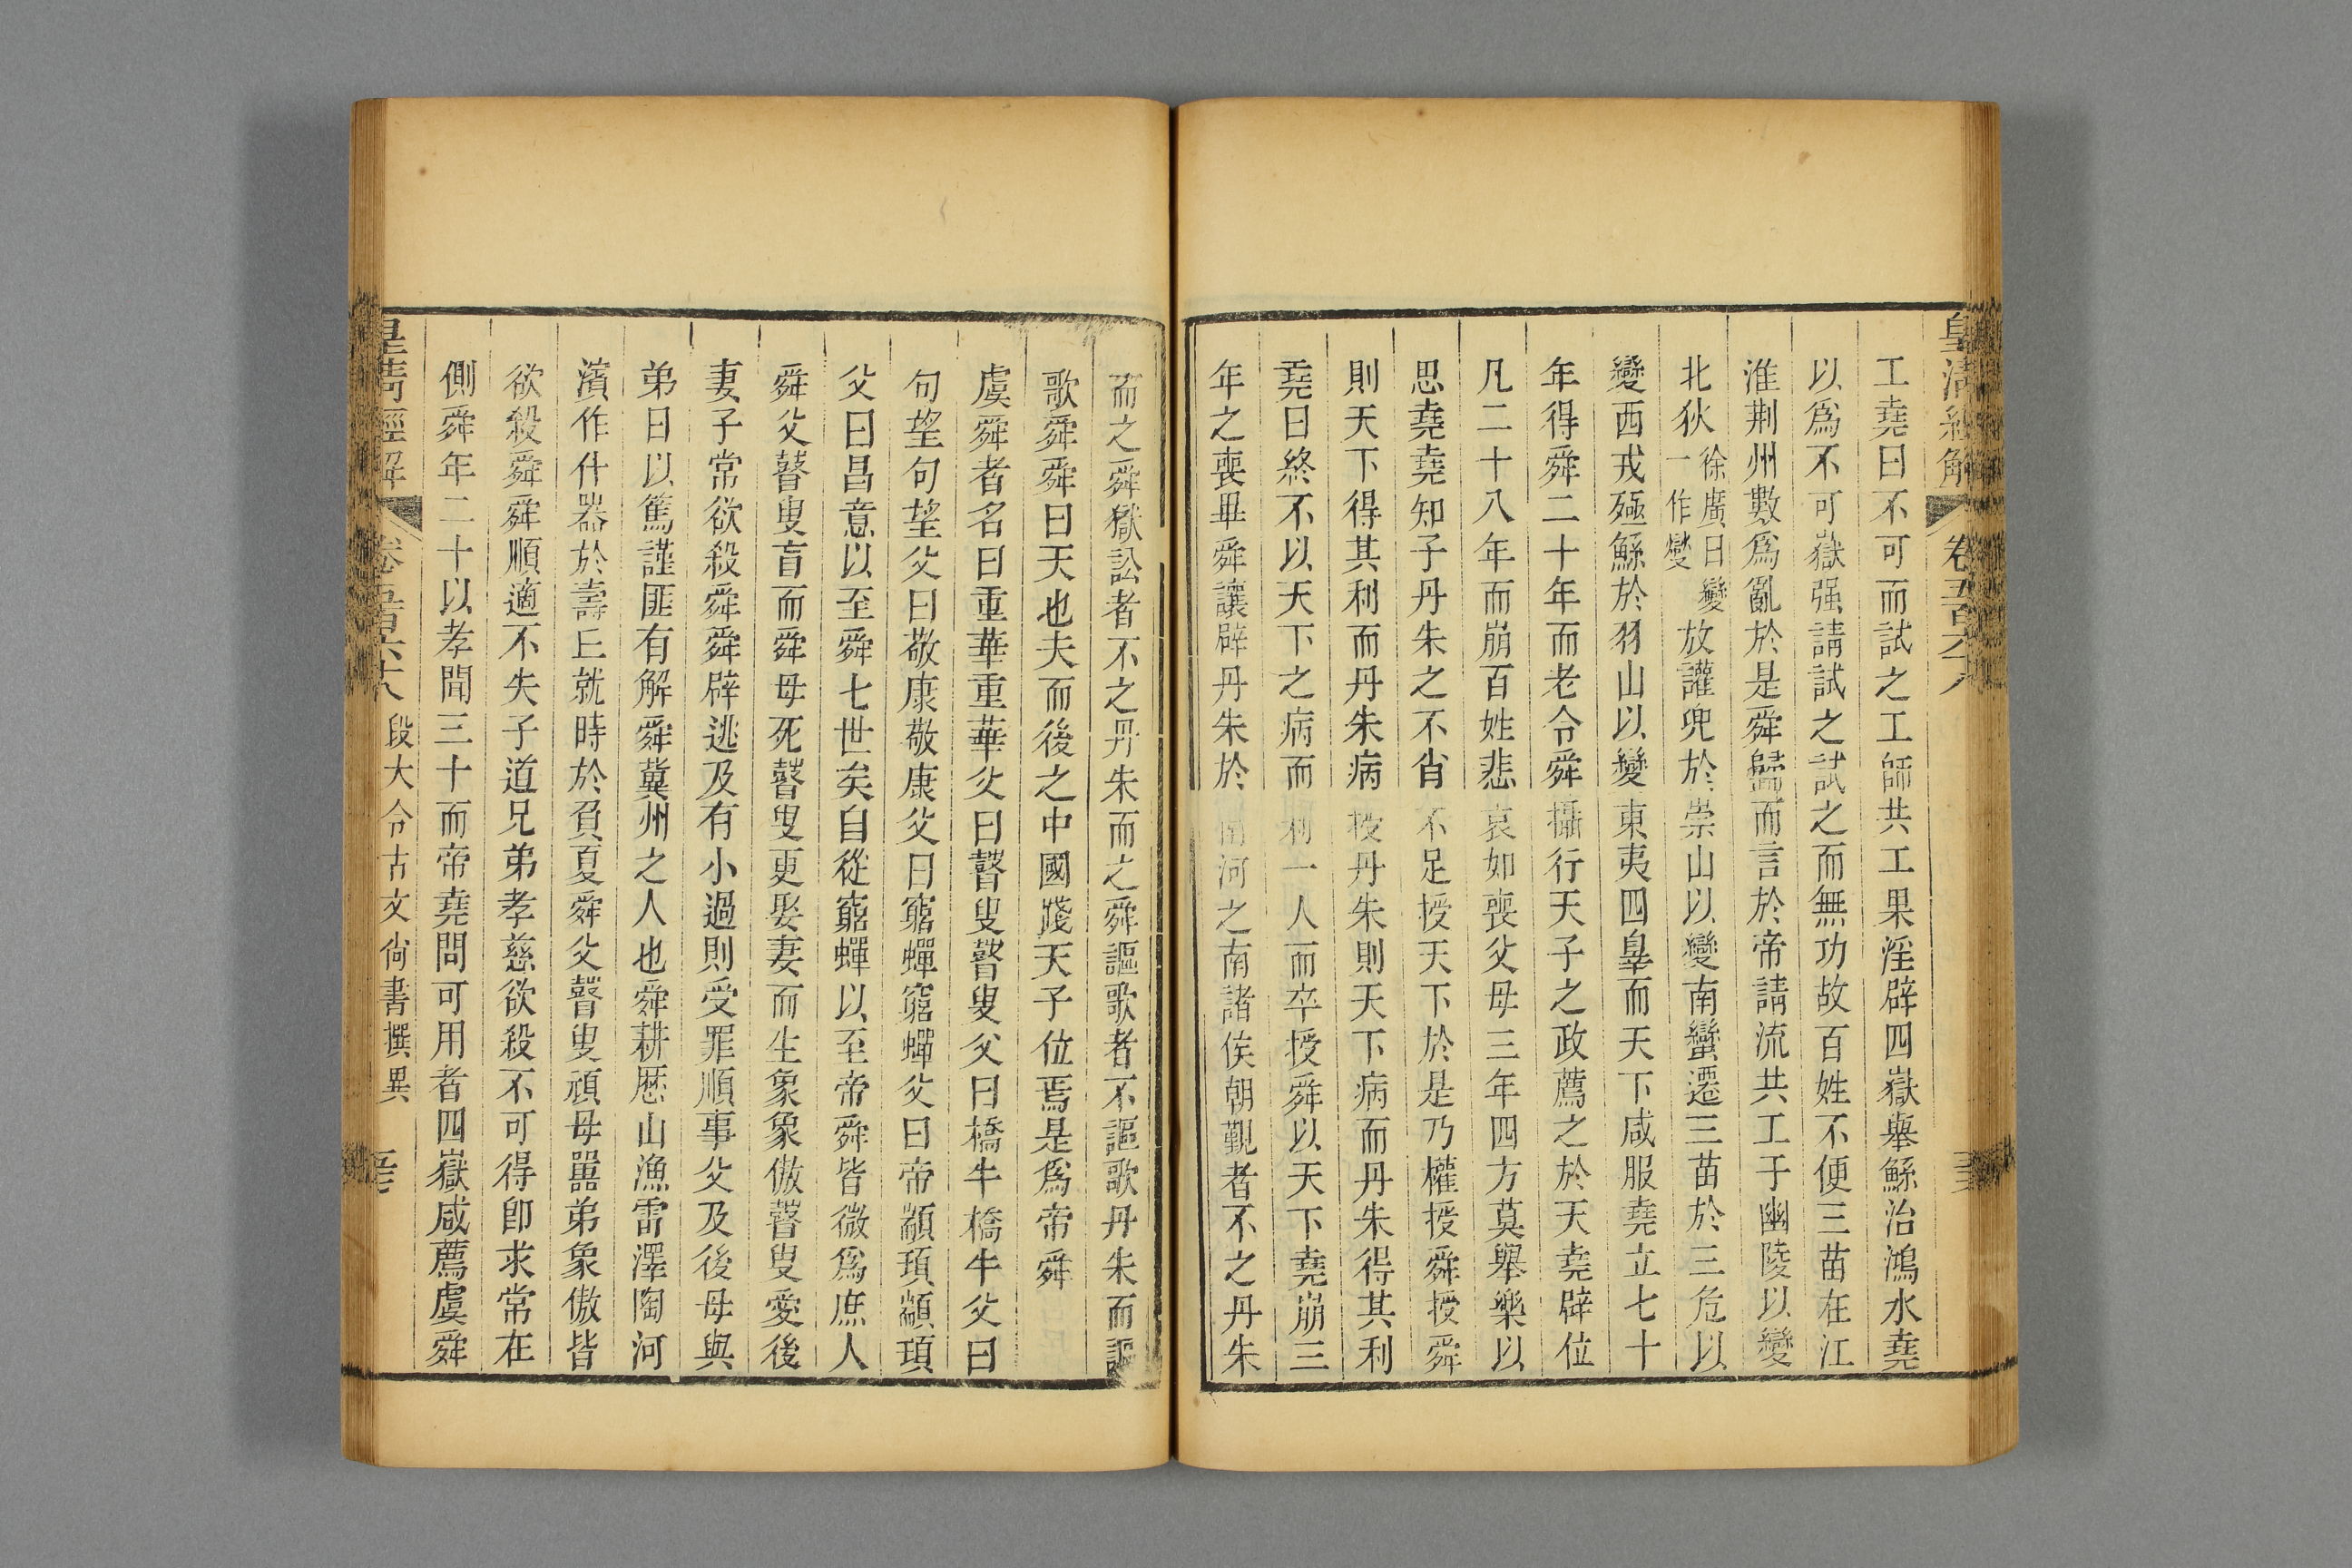 皇清經解 卷五百六十八
工堯曰不可而試之工師共工果淫辟四嶽舉鯀治鴻水堯
以爲不可嶽强請試之試之而無功故百姓不便三苗在江
淮荆州數爲亂於是舜歸而言於帝請流共工于幽陵以變
北狄徐廣曰變一作燮放讙兜於崇山以變南蠻遷三苗於三危以
變西戎殛鯀於羽山以變東夷四辠而天下咸服堯立七十
年得舜二十年而老令舜攝行天子之政薦之於天堯辟位
凡二十八年而崩百姓悲哀如喪父母三年四方莫舉樂以
思堯堯知子丹朱之不肖不足授天下於是乃權授舜授舜
則天下得其利而丹朱病授丹朱則天下病而丹朱得其利
堯曰終不以天下之病而利一人而卒授舜以天下堯崩三
年之喪畢舜讓辟丹朱於南河之南諸侯朝覲者不之丹朱
而之舜獄訟者不之丹朱而之舜謳歌者不謳歌丹朱而謳
歌舜舜曰天也夫而後之中國踐天子位焉是爲帝舜
虞舜者名曰重華重華父曰瞽叟瞽叟父曰橋牛橋牛父曰
句望句望父曰敬康敬康父曰窮蟬窮蟬父曰帝顓頊顓頊
父曰昌意以至舜七世矣自從窮蟬以至帝舜皆微爲庶人
舜父瞽叟盲而舜母死瞽叟更娶妻而生象象傲瞽叟愛後
妻子常欲殺舜舜辟逃及有小過則受罪順事父及後母與
弟日以篤謹匪有解舜冀州之人也舜耕厯山漁雷澤陶河
濱作什器於壽丘就時於負夏舜父瞽叟頑母嚚弟象傲皆
欲殺舜舜順適不失子道兄弟孝慈欲殺不可得卽求常在
側舜年二十以孝聞三十而帝堯問可用者四嶽咸薦虞舜
皇清經解 卷五百六十八 段大令古文尙書撰異